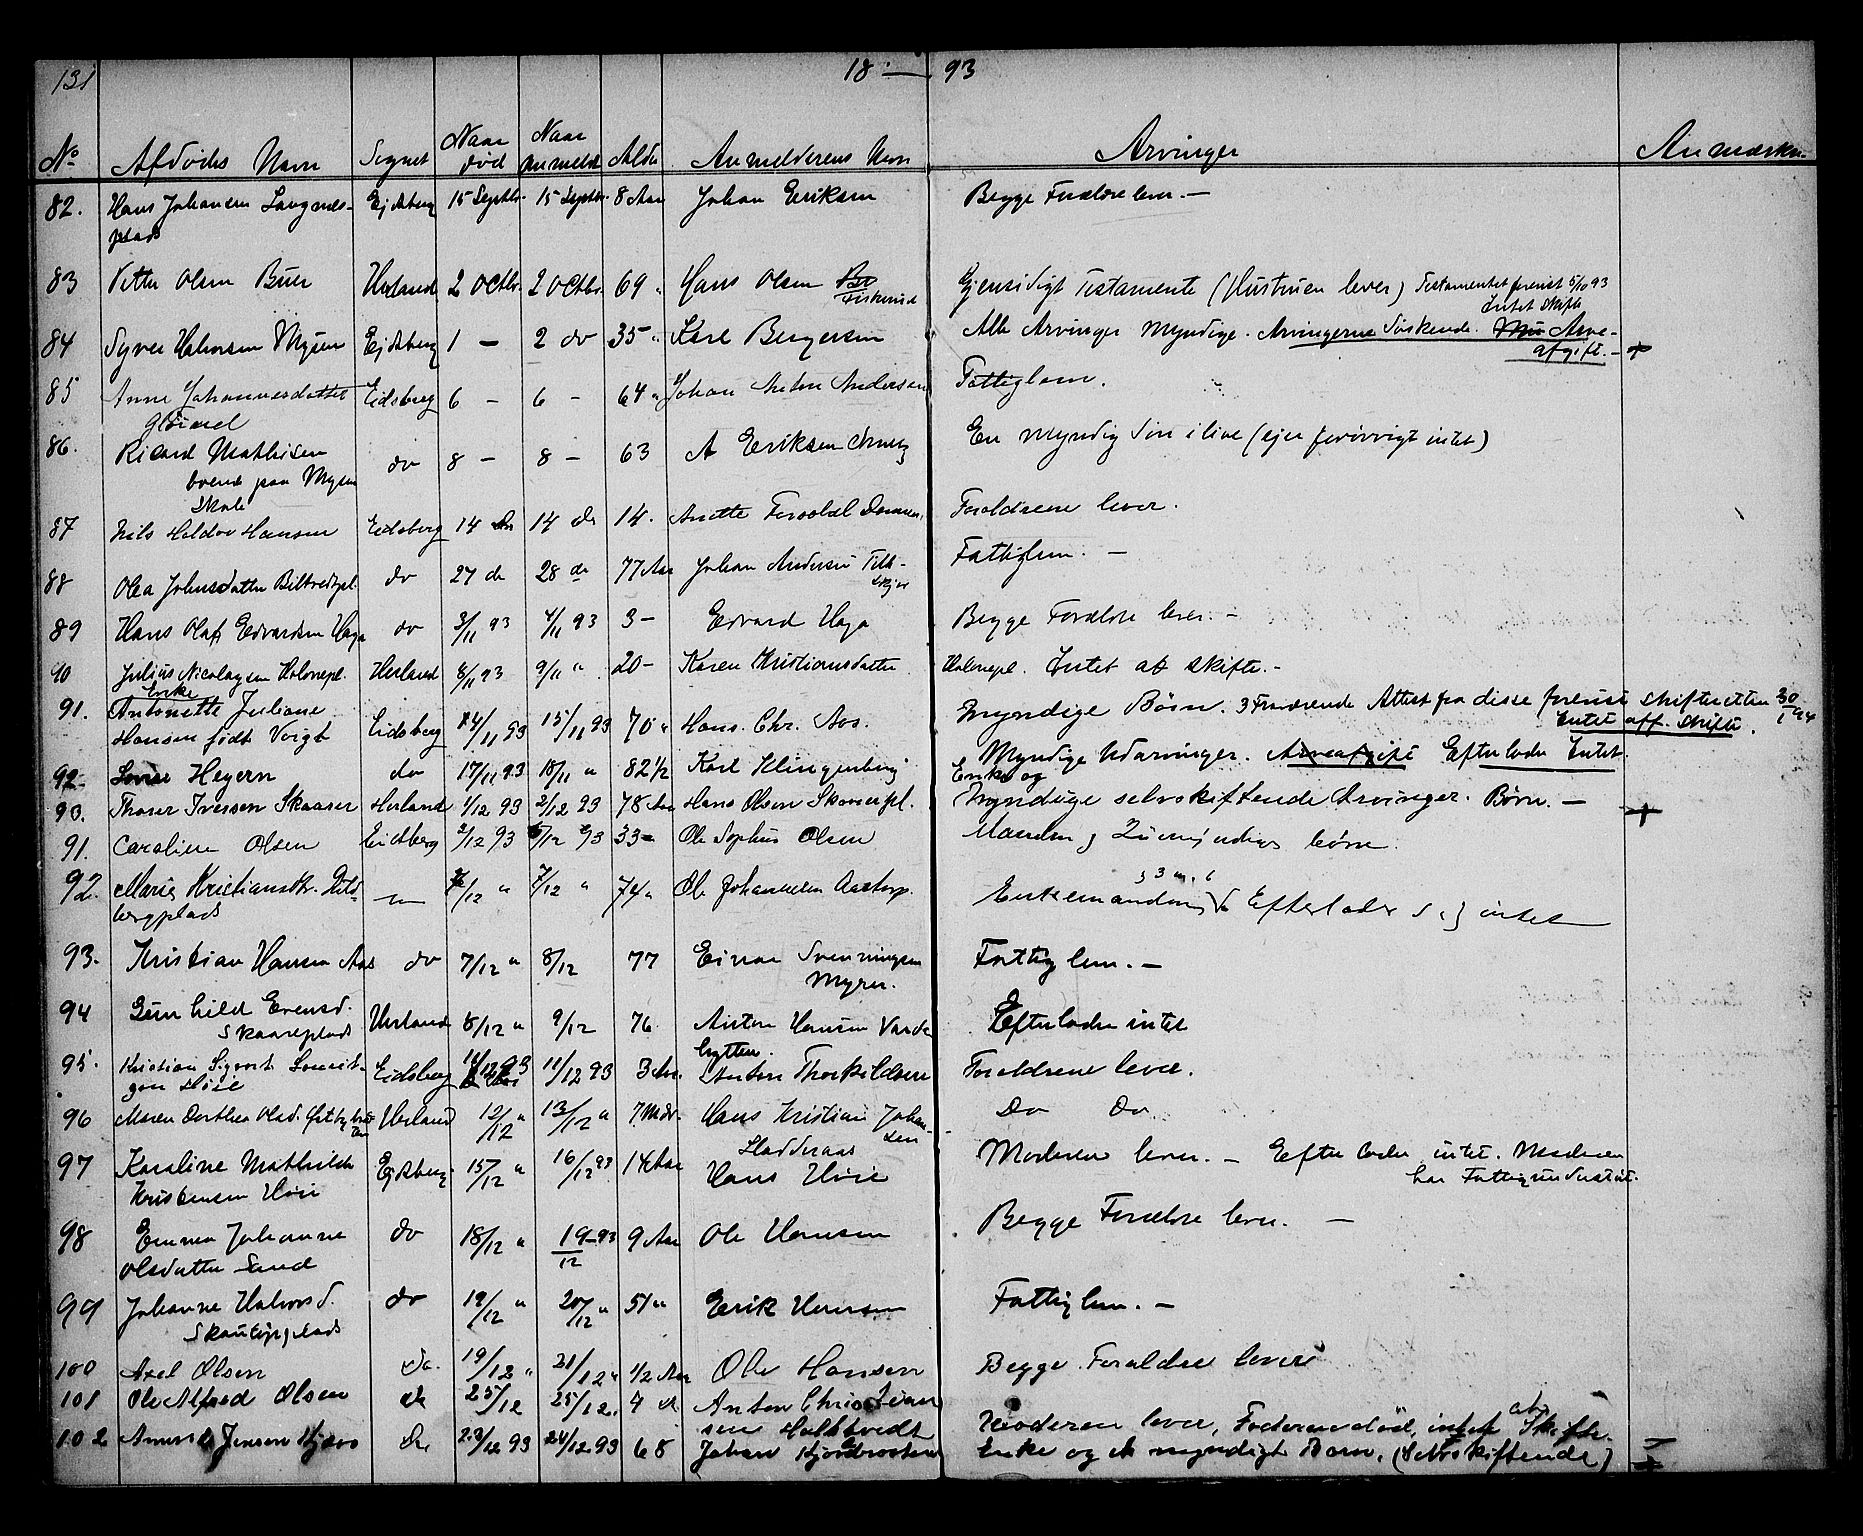 131 18 — 93
No Afdødes Navn Sognet Naar død Naar anmeldt Alder Anmelderens Navn Arvinger Anmærkn.
82. Hans Johansen Langnæs- Ejdsberg 15 Septbr. 15 Septbr. 8 Aar Johan Eriksen Begge Forældre lever. —
plads
83 Petter Olsen Buer Herland 2 Octbr. 2 Octbr. 69 " Hans Olsen Gjensidigt Testamente (Hustruen lever) Testamentet forevist 5/10 93
Intet Skifte
84 Syver Halvorsen Mysen Ejdsberg 1 — 2 do 35 " Karl Bergersen Alle Arvinger Myndige. Arvingerne Søskende. Arve-
afgift. — +
85 Anne Johannesdatter Eidsberg 6 — 6 — 64 " Johan Anton Andersen Fattiglem.
86. Ricard Mathisen do 8 — 8 — 63 A Eriksen En Myndig Søn i live (ejer forøvrigt intet)
boende paa Mysen
Skole
87 Nils Haldor Hansen Eidsberg 14 do 14 do 14. Anette Forældrene lever.
88 Olea Johnsdatter do 27 do 28 do 77 Aar Johan Andersen Fattiglem. —
89 Hans Olaf Edvardsen Haga do 3/11 93 4/11 93 3 — Edvard Haga Begge Forældre lever. —
90 Julius Nicolaysen Herland 8/11 93 9/11 " 20 — Karen Kristiansdatter Intet at skifte. —
Enke
91. Antonette Juliane Eidsberg 14/11 93 15/11 93 70 " Hans. Chr. Aas. Myndige Børn. 3 Fraværende Attest fra disse forevist skifteretten 30/1 94
Hansen født Voigt Intet aff. Skifte.
92. Lovise Heyern do 17/11 93 18/11 " 82 1/2 Karl Klingenberg Myndige Udarvinger. Arveafgift Efterlader Intet
Enke og
90. Thorer Iversen Skaarer Herland 1/12 93 2/12 93 78 Aar Hans Olsen Skaarerpl. Myndige selvskiftende Arvinger. Børn. — +
91. Caroline Olsen Eidsberg 2/12 93 5/12 93 33 — Ole Sophus Olsen Manden og 2 umyndige børn.
92. Marie Kristiansdtr. — /12 " 7/12 " 74 " Ole Johannesen Aastorp. Enkemanden Efterlader sig intet
bergplads
93. Kristian Hansen Aas do 7/12 " 8/12 77 Einar Svenningsen Fattiglem. —
Myrer.
94 Gunhild Evensd. Herland 8/12 " 9/12 76 Anton Hansen Efterlader intet
Skaareplads hytten.
95. Kristian Sigvart Eidsberg 11/12 93 3 Aar. Anton Thorkildsen Forældrene lever.
96 Maren Dorthea Olsd. Herland 12/12 " 13/12 " 7 Mdr. Hans Kristian Johan- Do Do
sen
97 Karoline Mathilde Ejdsberg 15/12 " 16/12 93 14 Aar Hans Høie Moderen lever. — Efterlader intet. Moderen
Kristensen Høie har Fattigunderstøt.
98 Emma Johanne do 18/12 " 19/12 93 9 Aar Ole Hansen Begge Forældre lever. —
Olsdatter Sand
99 Johanne Halvorsd. do 19/12 " 20/12 " 51 " Erik Hansen Fattiglem. —
100 Axel Olsen do. 19/12 " 21/12 " 1/2 Aar Ole Hansen Begge Foraldre levere
101 Ole Alfred Olsen do 25/12 25/12. 4 d Anton Christian Moderen lever, Faderen død, intet at Skifte.
sen
102 Jensen do 23/12 93 24/12 93 68 Johan Enke og et myndigt Barn. (Selvskiftende) +